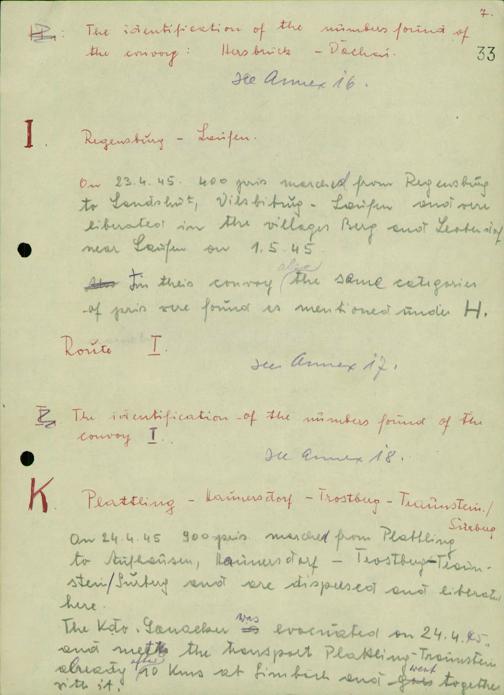 7.
33
The identification of the numbers found of
the convoy: Hersbruck - Dachau.
see Annex 16.
I
Regensburg - Laufen.
On 23.4.45. 400 pris marched from Regensburg
to Landshut, Vilsbiburg - Laufen and were
liberated in the villages Berg and
near Laufen on 1.5.45.
In theis convoy also the same categories
of pris were found as mentioned under H.
Route I.
see Annex 17.
The identification of the numbers found of the
convoy I.
see Annex 18.
K.
Plattling - - Trostberg - Traunstein/
Surberg
On 24.4.45 900 pris. marched from Plattling
to Aufhausen, - Trostberg - Traun-
stein/Surberg and are dispersed and liberated
here.
The Kdo. Ganacker was evacuated on 24.4.45.
and the transport Plattling-Traunstein
already after 10 Kms at Simbach and went together
with it.